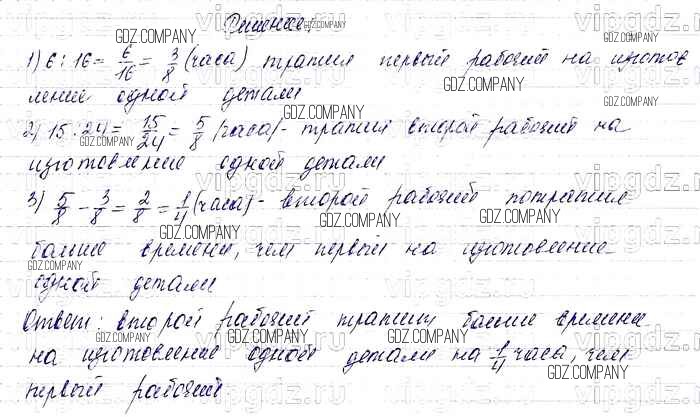 Решение:
1) 6 : 16 = 6/16 = 3/8 (часа) тратил первый рабочий на изготов
ление одной детали
2) 15 : 24 = 15/24 = 5/8 (часа) - тратил второй рабочий на
изготовление одной детали
3) 5/8 - 3/8 = 2/8 = 1/4 (часа) - второй рабочий потратил
больше времени, чем первый на изготовление
одной детали
Ответ: второй рабочий тратил больше времени
на изготовление одной детали на 1/4 часа, чем
первый рабочий
GDZ.COMPANY
GDZ.COMPANY
GDZ.COMPANY
GDZ.COMPANY
GDZ.COMPANY
GDZ.COMPANY
GDZ.COMPANY
GDZ.COMPANY
GDZ.COMPANY
GDZ.COMPANY
GDZ.COMPANY
GDZ.COMPANY
GDZ.COMPANY
vipgdz.ru